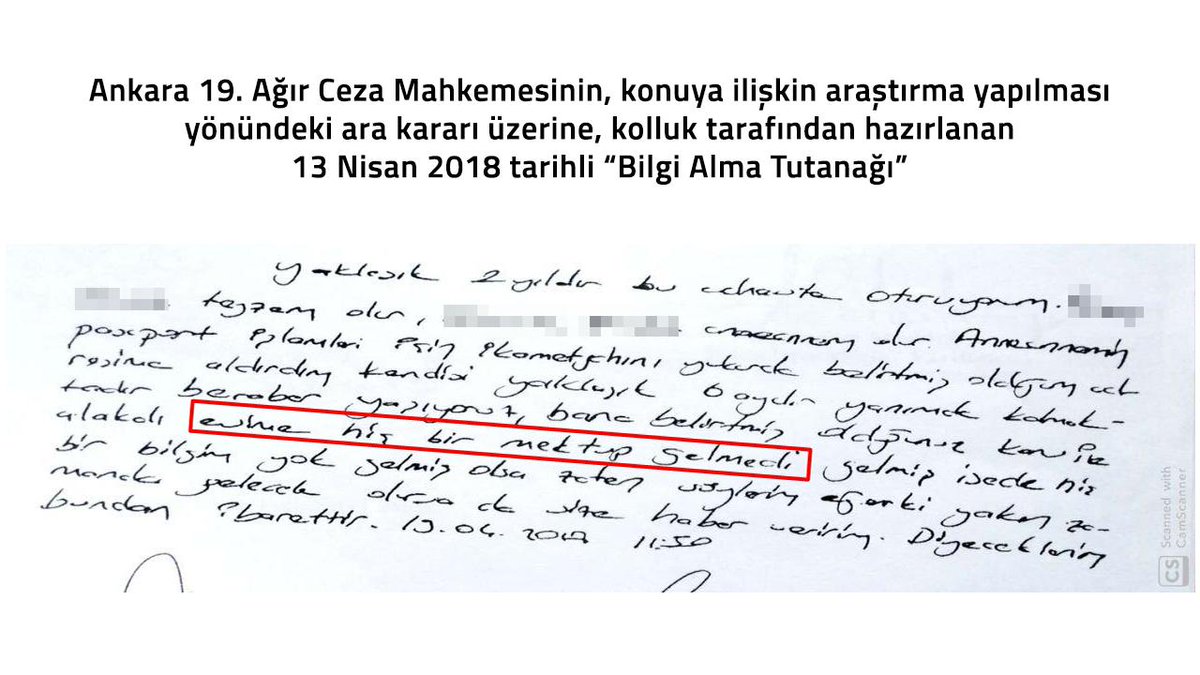 Ankara 19. Ağır Ceza Mahkemesinin, konuya ilişkin araştırma yapılması
yönündeki ara kararı üzerine, kolluk tarafından hazırlanan
13 Nisan 2018 tarihli “Bilgi Alma Tutanağı”
yaklaşık 2 yıldır bu oturuyorum.
teyzem olur, anneannem olur. Anneannemin
pasaport işlemleri için ikametgahını yukarıda belirtmiş olduğum
aldırdım kendisi yaklaşık 6 aydır yanımda kalmak-
tadır beraber yaşıyoruz, bana belirtmiş olduğunuz konu ile
alakalı evime hiç bir mektup gelmedi gelmiş isede hiç
bir bilgim yok gelmiş olsa zaten söylerim eğerki yakın za-
manda gelecek olursa da size haber veririm. Diyeceklerim
bundan ibarettir. 13.04.2018 11:50
Scanned with
CamScanner
CS